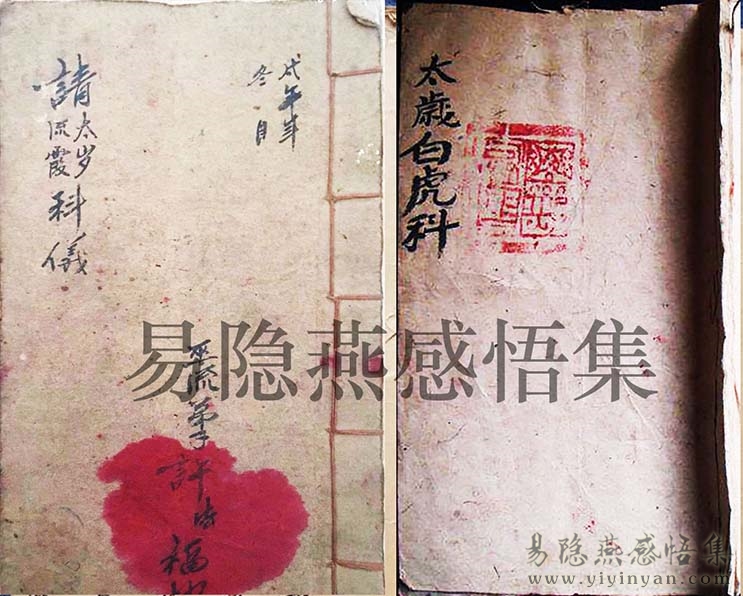 戊午年
冬
請太岁流霞科儀
巫流弟子許法福
太歲白虎科
易隐燕感悟集
易隐燕感悟集
www.yiyinyan.com